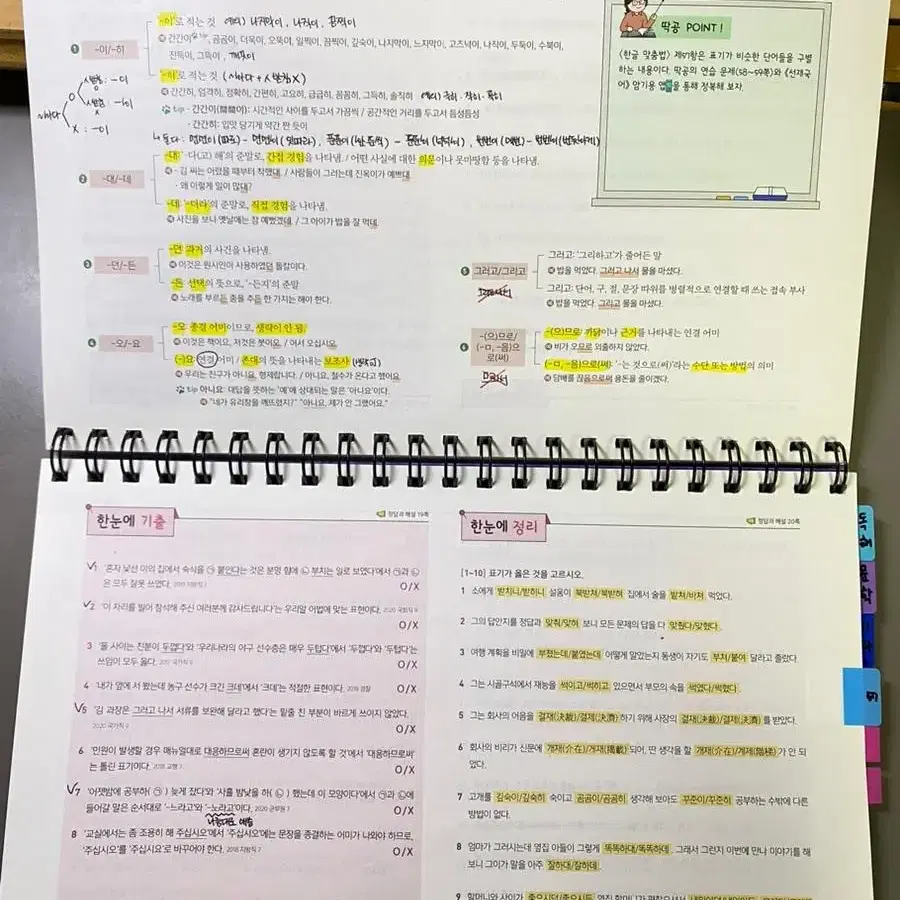 '-이'로 적는 것 예외) 나지막이, 나직이, 끔찍이
-이/-히
간간이, 곰곰이, 더욱이, 오뚝이, 일찍이, 끔찍이, 깊숙이, 나지막이, 느지막이, 고즈넉이, 나직이, 두둑이, 수북이,
진득이, 그득이,
'-히'로 적는 것
간간히, 엄격히, 정확히, 간편히, 고요히, 급급히, 꼼꼼히, 그득히, 솔직히
tip - 간간이(間間이): 시간적인 사이를 두고서 가끔씩 / 공간적인 거리를 두고서 듬성듬성
- 간간히: 입맛 당기게 약간 짠 듯이
-대/-데
-대: '-다(고) 해'의 준말로, 간접 경험을 나타냄. / 어떤 사실에 대한 의문이나 못마땅함 등을 나타냄.
- 김 씨는 어렸을 때부터 착했대. / 사람들이 그러는데 진옥이가 예쁘대.
- 왜 이렇게 일이 많대?
-데: '-더라'의 준말로, 직접 경험을 나타냄.
사진을 보니 옛날에는 참 예뻤겠데. / 그 아이가 밥을 잘 먹데.
딱공 POINT!
〈한글 맞춤법〉 제57항은 표기가 비슷한 단어들을 구별
하는 내용이다. 딱공의 연습 문제(58~59쪽)와 《선재국
어》 암기용 앱을 통해 정복해 보자.
-던/-든
-던: 과거의 사건을 나타냄.
이것은 원시인이 사용하였던 돌칼이다.
-든: 선택의 뜻으로, '-든지'의 준말
노래를 부르든 춤을 추든 한 가지는 해야 한다.
-오/-요
-오: 종결 어미이므로, 생략이 안 됨.
이것은 책이오, 저것은 붓이오. / 어서 오십시오.
(-)요: 연결 어미 / 존대의 뜻을 나타내는 보조사
우리는 친구가 아니요, 형제랍니다. / 아니요, 철수가 온다고 했어요.
tip 아니요: 대답을 뜻하는 '예'에 상대되는 말은 '아니요'이다.
"네가 유리창을 깨뜨렸지?" "아니요, 제가 안 그랬어요."
그러고/그리고
그러고: '그리하고'가 줄어든 말
밥을 먹었다. 그러고 나서 물을 마셨다.
그리고: 단어, 구, 절, 문장 따위를 병렬적으로 연결할 때 쓰는 접속 부사
밥을 먹었다. 그리고 물을 마셨다.
-(으)므로/
(-ㅁ, -음)으
로(써)
-(으)므로: 까닭이나 근거를 나타내는 연결 어미
비가 오므로 외출하지 않았다.
(-ㅁ, -음)으로(써): '-는 것으로(써)'라는 수단 또는 방법의 의미
담배를 끊음으로써 용돈을 줄이겠다.
한눈에 기출
정답과 해설 19쪽
1 '혼자 낯선 이의 집에서 숙식을 ㉠ 붙인다는 것은 분명 힘에 ㉡ 부치는 일로 보였다'에서 ㉠과 ㉡
은 모두 잘못 쓰였다. O/X
2 '이 자리를 빌어 참석해 주신 여러분께 감사드립니다'는 우리말 어법에 맞는 표현이다.
O/X
3 '둘 사이는 친분이 두껍다'와 '우리나라의 야구 선수층은 매우 두텁다'에서 '두껍다'와 '두텁다'는
쓰임이 모두 옳다. O/X
4 '내가 앞에 서 봤는데 농구 선수가 크긴 크데'에서 '크데'는 적절한 표현이다. O/X
5 '김 과장은 그러고 나서 서류를 보완해 달라고 했다'는 밑줄 친 부분이 바르게 쓰이지 않았다.
2020 국가직 9 O/X
6 '민원이 발생할 경우 매뉴얼대로 대응하므로써 혼란이 생기지 않도록 할 것'에서 '대응하므로써'
는 틀린 표기이다. O/X
7 '어젯밤에 공부하( ㉠ ) 늦게 잤다'와 '사흘 밤낮을 하( ㉡ ) 했는데 이 모양이다'에서 ㉠과 ㉡에
들어갈 말은 순서대로 '-느라고'와 '-노라고'이다. O/X
8 '교실에서는 좀 조용히 해 주십시오'에서 '주십시오'에는 문장을 종결하는 어미가 나와야 하므로,
'주십시오'를 '주십시요'로 바꾸어야 한다. O/X
한눈에 정리
정답과 해설 20쪽
[1~10] 표기가 옳은 것을 고르시오.
1 소에게 받치니/받히니 설움이 북받쳐/북받혀 집에서 술을 밭쳐/바쳐 먹었다.
2 그의 답안지를 정답과 맞춰/맞혀 보니 모든 문제의 답을 다 맞췄다/맞혔다.
3 여행 계획을 비밀에 부쳤는데/붙였는데 어떻게 알았는지 동생이 자기도 부쳐/붙여 달라고 졸랐다.
4 그는 시골구석에서 재능을 썩이고/썩히고 있으면서 부모의 속을 썩였다/썩혔다.
5 그는 회사의 어음을 결재(決裁)/결제(決濟)하기 위해 사장의 결재(決裁)/결제(決濟)를 받았다.
6 회사의 비리가 신문에 개재(介在)/게재(揭載)되어, 딴 생각할 개재(介在)/계제(階梯)가 안 되
었다.
7 고개를 깊숙이/깊숙히 숙이고 곰곰이/곰곰히 생각해 보아도 꾸준이/꾸준히 공부하는 수밖에 다른
방법이 없다.
8 엄마가 그러시는데 옆집 아들이 그렇게 똑똑하대/똑똑하데. 그래서 그런지 이번에 만나 이야기를 해
보니 그이가 말을 아주 잘하대/잘하데.
독해
문학